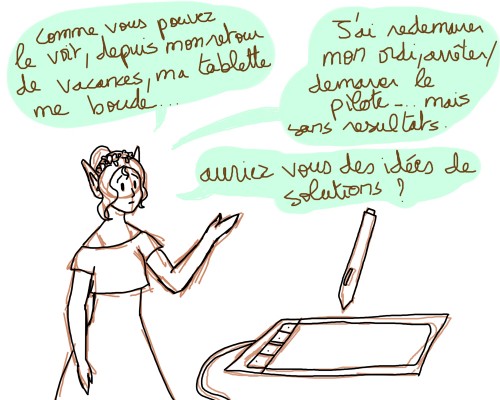 comme vous pouvez
le voir, depuis mon retour
de vacances, ma tablette
me boude...
J'ai redemarrer
mon ordi, arrêter/
demarrer le
pilote.... mais
sans resultats.
auriez vous des idées de
solutions ?